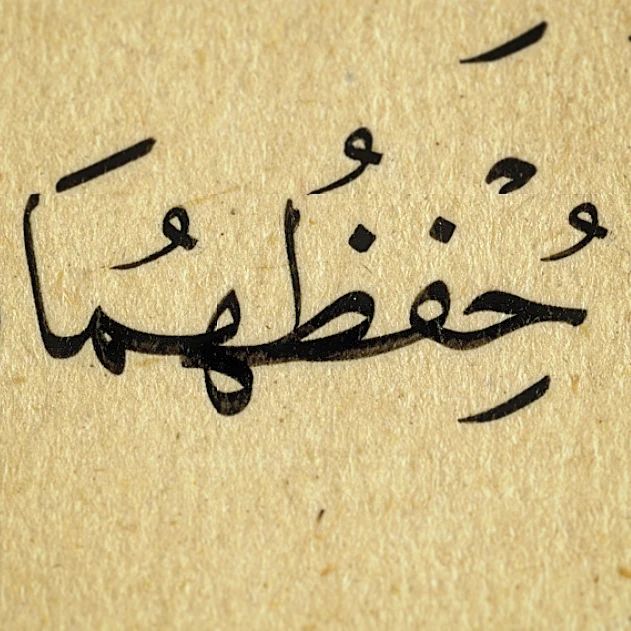 حِفْظُهُمَا